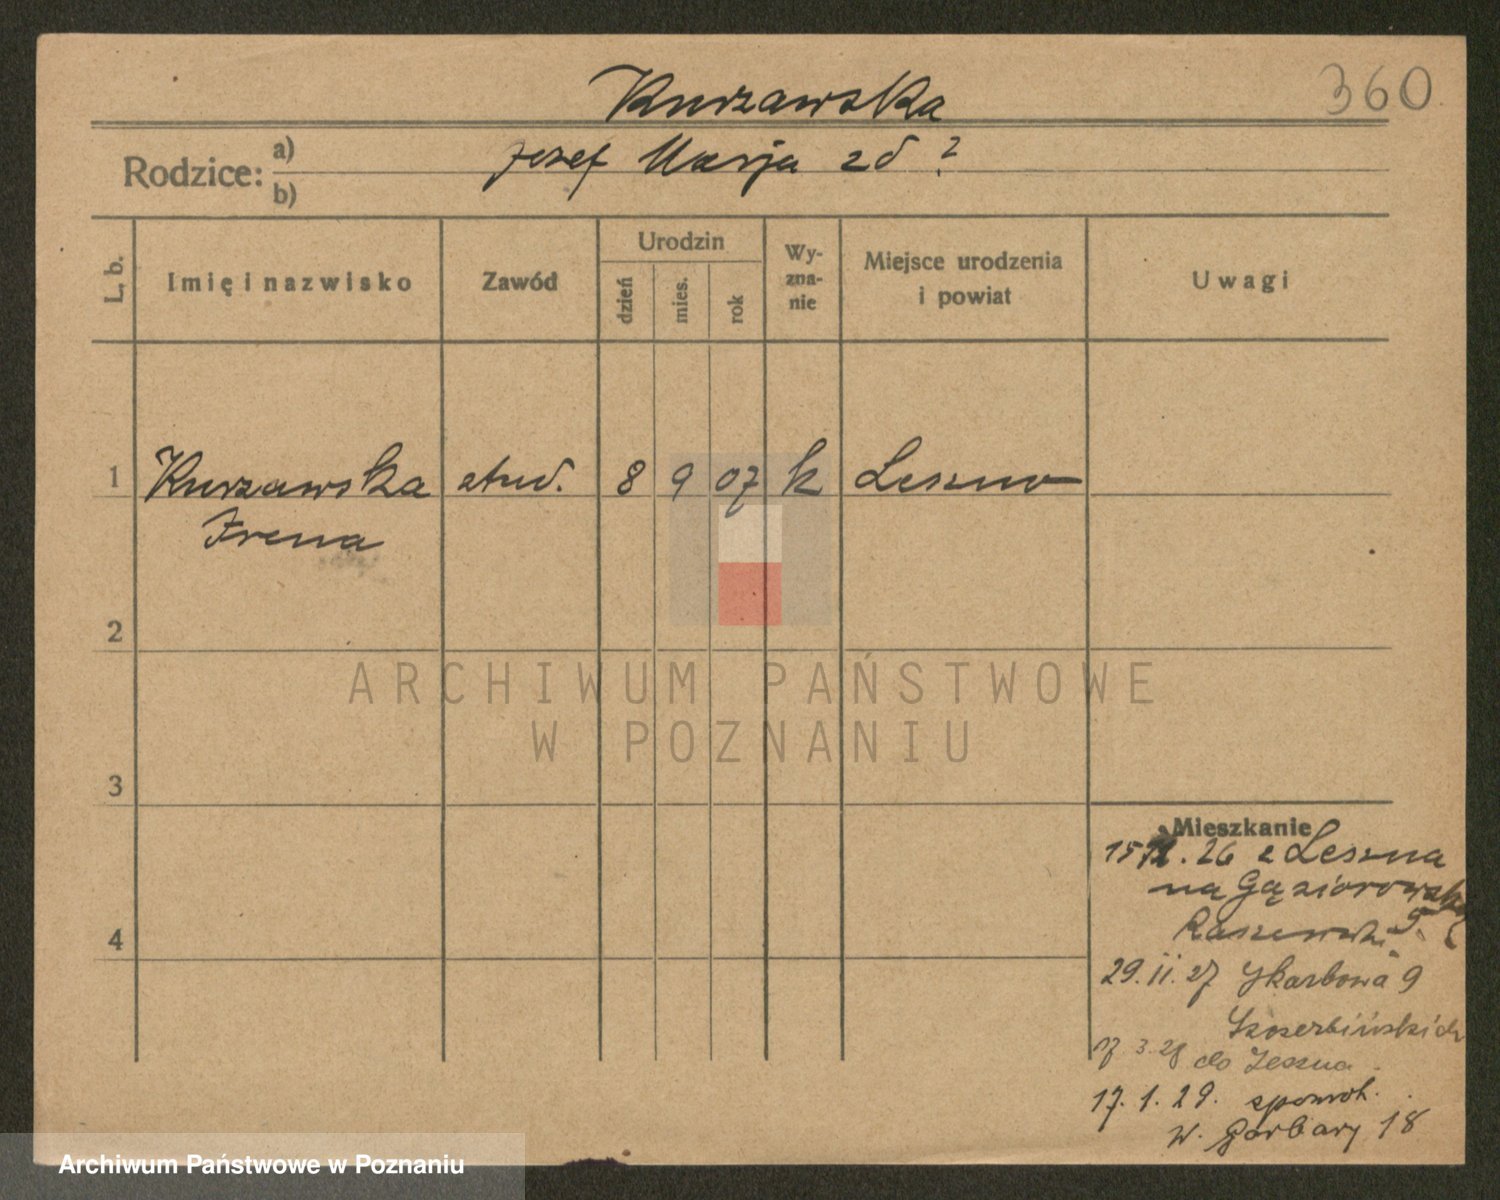 Kurzawska
360
Rodzice: a) Jozef Marja zd ?
b)
L. b.
Imię i nazwisko
Zawód
Urodzin
dzień
mies.
rok
Wy-
zna-
nie
Miejsce urodzenia
i powiat
Uwagi
1 Kurzawska stud. 8 9 07 k Leszno
Irena
2
ARCHIWUM PAŃSTWOWE
W POZNANIU
3
Mieszkanie
26 z Leszna
na Gąsiorowskich
Raszewski
4
29.11.27 Skarbowa 9
3.28 do Leszna
17.1.29. spowrot.
w. Garbary 18
Archiwum Państwowe w Poznaniu